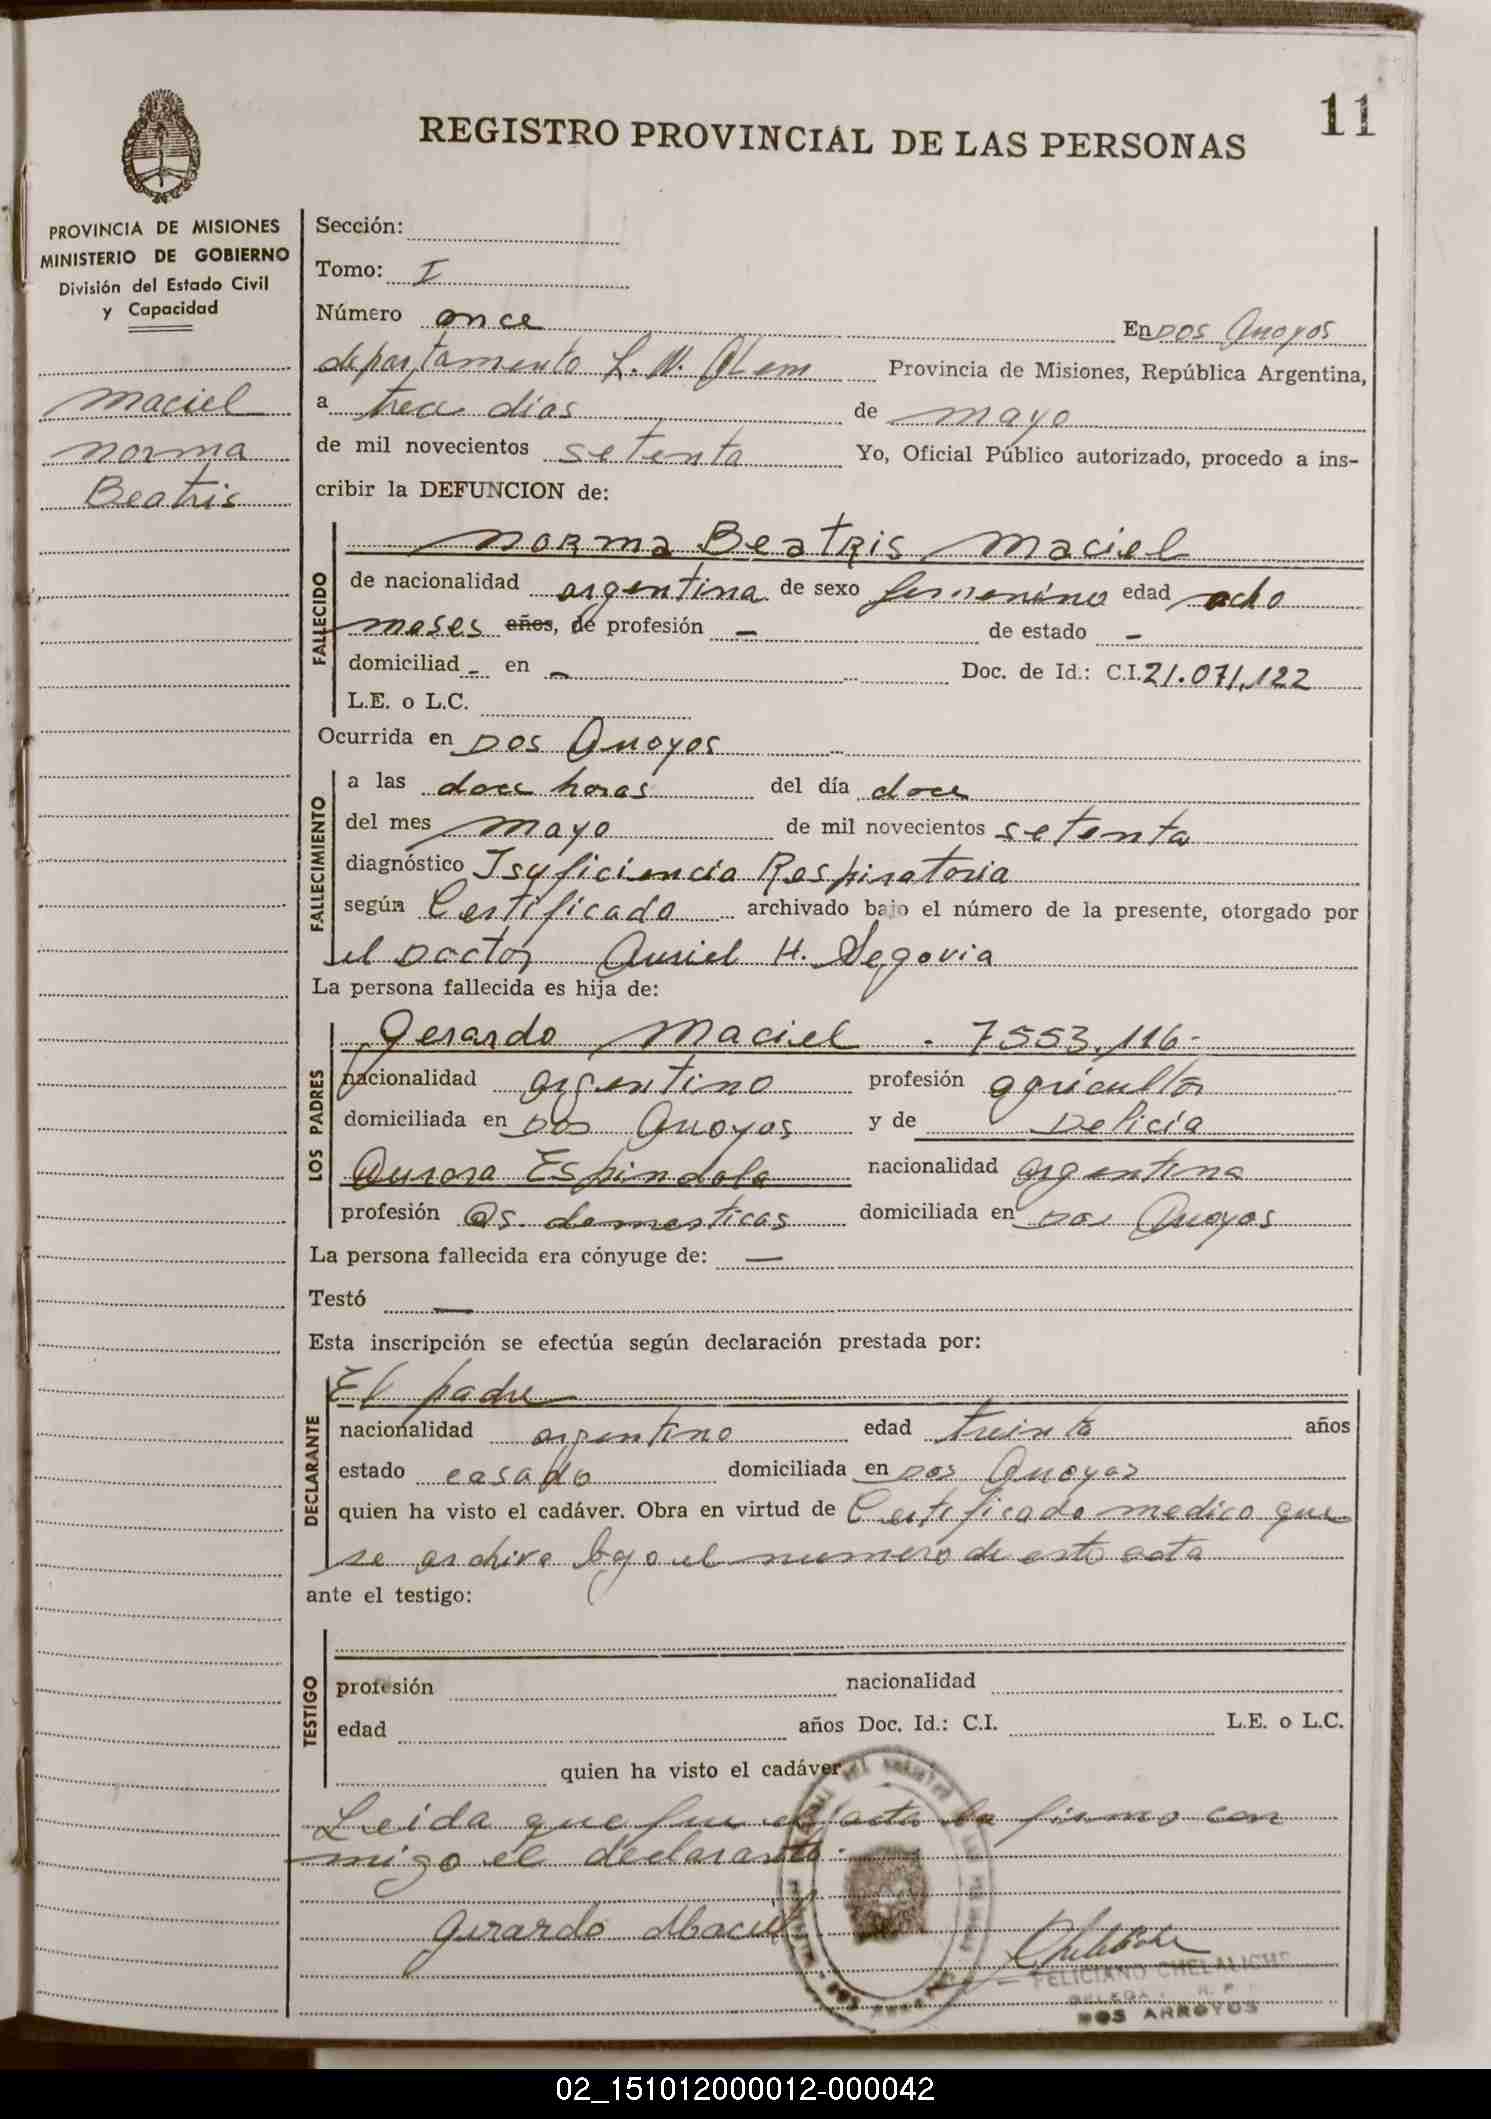 11
REGISTRO PROVINCIAL DE LAS PERSONAS
PROVINCIA DE MISIONES
MINISTERIO DE GOBIERNO
División del Estado Civil
y Capacidad
Maciel
Norma
Beatris
Sección:
Tomo: I
Número once En Dos Arroyos
departamento L. N. Alem Provincia de Misiones, República Argentina,
a trece dias de mayo
de mil novecientos setenta Yo, Oficial Público autorizado, procedo a ins-
cribir la DEFUNCION de:
FALLECIDO
Norma Beatris Maciel
de nacionalidad argentina de sexo femenino edad ocho
meses años, de profesión — de estado —
domiciliad - en - Doc. de Id.: C.I. 21.071,122
L.E. o L.C.
Ocurrida en Dos Arroyos
FALLECIMIENTO
a las doce horas del día doce
del mes mayo de mil novecientos setenta
diagnóstico Isuficiencia Respiratoria
según Certificado archivado bajo el número de la presente, otorgado por
el Doctor H. Segovia
La persona fallecida es hija de:
LOS PADRES
Gerardo Maciel . 7553.116-
nacionalidad argentino profesión agricultor
domiciliada en Dos Arroyos y de Delicia
Aurora Espindola nacionalidad argentina
profesión Qs. domesticas domiciliada en Dos Arroyos
La persona fallecida era cónyuge de: —
Testó —
Esta inscripción se efectúa según declaración prestada por:
DECLARANTE
El padre
nacionalidad argentino edad treinta años
estado casado domiciliada en Dos Arroyos
quien ha visto el cadáver. Obra en virtud de Certificado medico que
se archiva bajo el numero de esta acta
ante el testigo:
TESTIGO
profesión nacionalidad
edad años Doc. Id.: C.I. L.E. o L.C.
quien ha visto el cadáver
Leida que fue el acta la firma con
migo el declarante.
Gerardo Maciel
FELICIANO
DOS ARROYOS
02_151012000012-000042